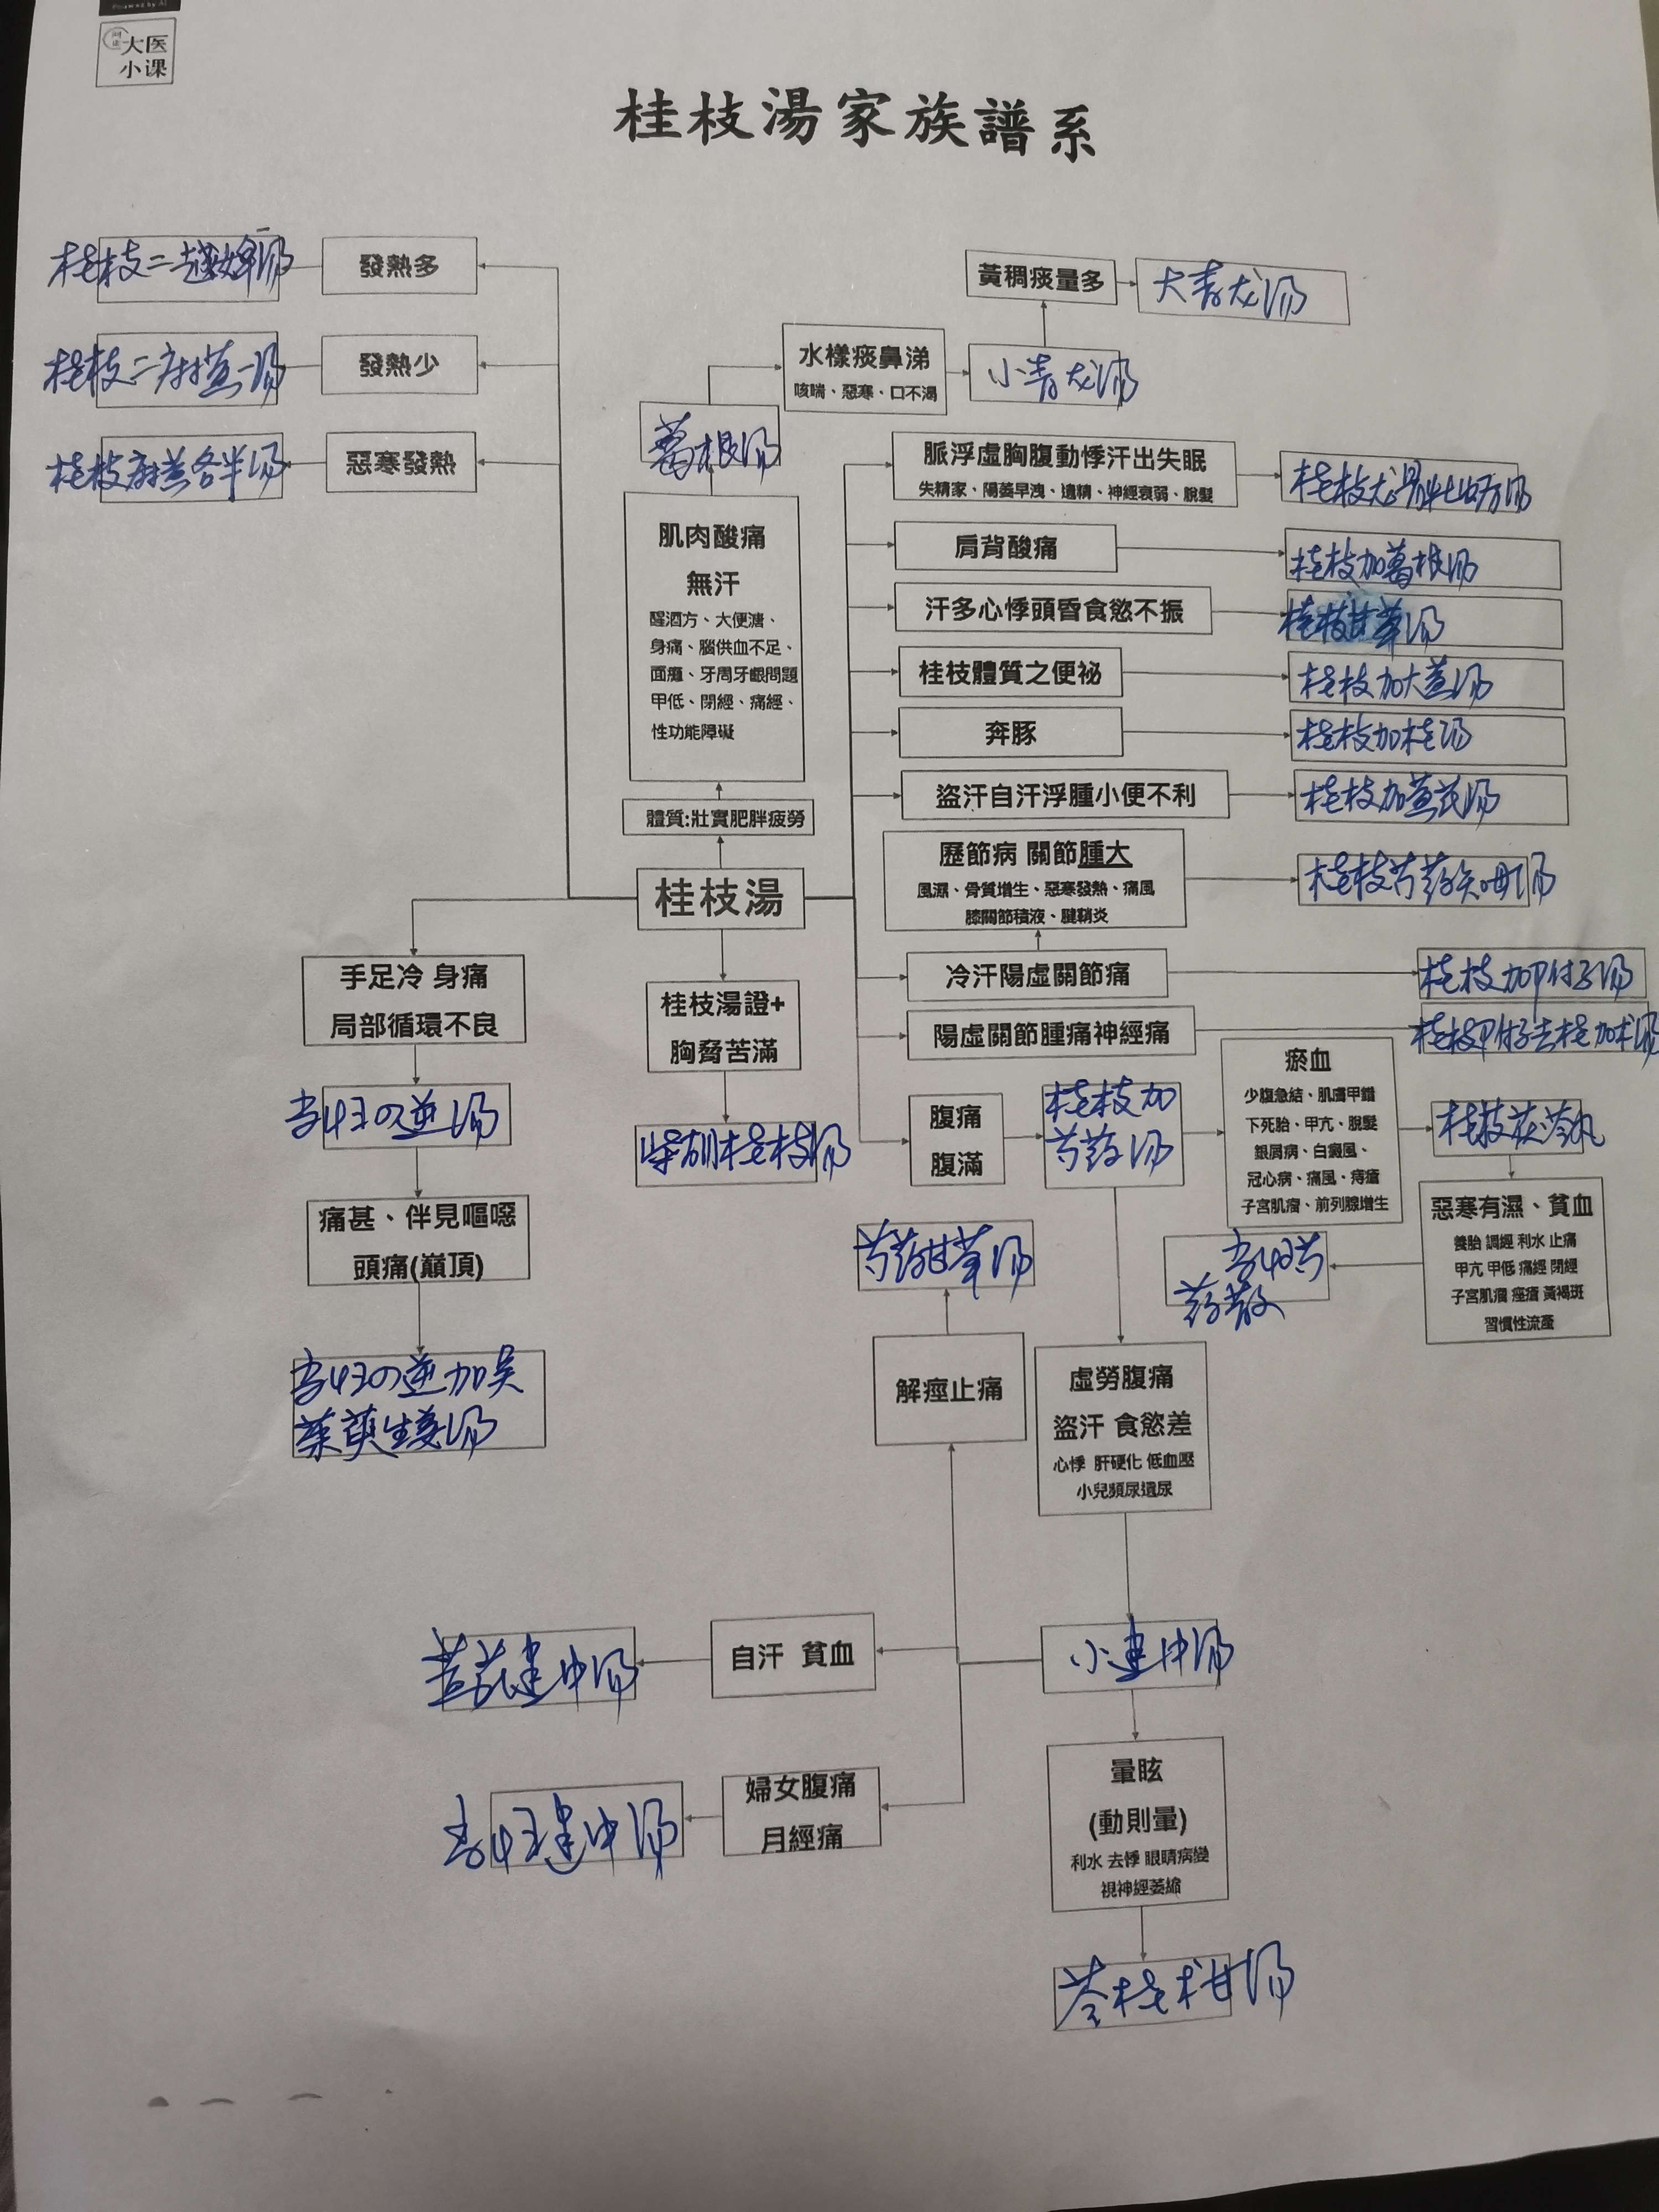 Powered by AI
大医
小课
桂枝湯家族譜系
桂枝二越婢一汤
發熱多
桂枝二麻黄一汤
發熱少
桂枝麻黄各半汤
惡寒發熱
黃稠痰量多
大青龙汤
水樣痰鼻涕
咳喘、惡寒、口不渴
小青龙汤
葛根汤
肌肉酸痛
無汗
醒酒方、大便溏、
身痛、腦供血不足、
面癱、牙周牙齦問題
甲低、閉經、痛經、
性功能障礙
體質:壯實肥胖疲勞
桂枝湯
脈浮虛胸腹動悸汗出失眠
失精家、陽萎早洩、遺精、神經衰弱、脫髮
桂枝龙骨牡蛎汤
肩背酸痛
桂枝加葛根汤
汗多心悸頭昏食慾不振
桂枝甘草汤
桂枝體質之便祕
桂枝加大黄汤
奔豚
桂枝加桂汤
盜汗自汗浮腫小便不利
桂枝加黄芪汤
歷節病 關節腫大
風濕、骨質增生、惡寒發熱、痛風
膝關節積液、腱鞘炎
桂枝芍药知母汤
冷汗陽虛關節痛
桂枝加附子汤
陽虛關節腫痛神經痛
桂枝附子去桂加术汤
手足冷 身痛
局部循環不良
当归四逆汤
痛甚、伴見嘔噁
頭痛(巔頂)
当归四逆加吴
茱萸生姜汤
桂枝湯證+
胸脅苦滿
柴胡桂枝汤
腹痛
腹滿
桂枝加
芍药汤
瘀血
少腹急結、肌膚甲錯
下死胎、甲亢、脫髮
銀屑病、白癜風、
冠心病、痛風、痔瘡
子宮肌瘤、前列腺增生
桂枝茯苓丸
惡寒有濕、貧血
養胎 調經 利水 止痛
甲亢 甲低 痛經 閉經
子宮肌瘤 痤瘡 黃褐斑
習慣性流產
当归芍
药散
芍药甘草汤
解痙止痛
虛勞腹痛
盜汗 食慾差
心悸 肝硬化 低血壓
小兒頻尿遺尿
小建中汤
自汗 貧血
黄芪建中汤
婦女腹痛
月經痛
当归建中汤
暈眩
(動則暈)
利水 去悸 眼睛病變
視神經萎縮
苓桂术甘汤